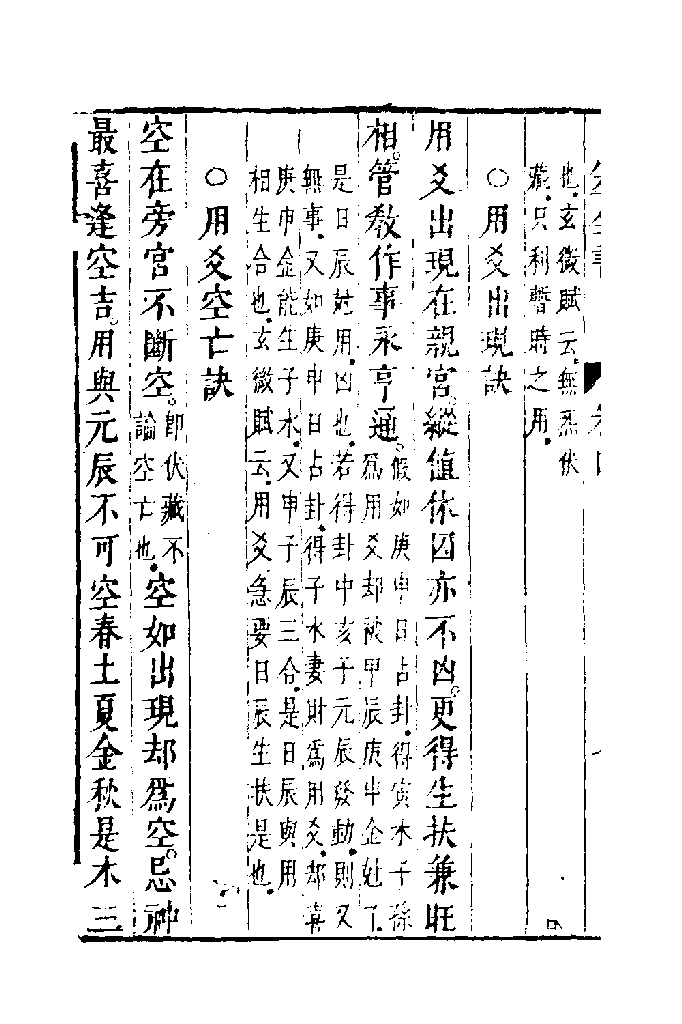 也玄微賦云無炁伏
藏只利暫時之用
○用爻出現訣
用爻出現在親宮縱值休囚亦不凶更得生扶兼旺
相管教作事永亨通假如庚申日占卦得寅木子孫
為用爻却被甲辰庚申金尅了
是日辰尅用凶也若得卦中亥子元辰發動則又
無事又如庚申日占卦得子水妻財為用爻却喜
庚申金能生子水又申子辰三合是日辰與用
相生合也玄微賦云用爻急要日辰生扶是也
○用爻空亡訣
空在旁宮不斷空即伏藏不
論空亡也空如出現却為空忌神
最喜逢空吉用與元辰不可空春土夏金秋是木三